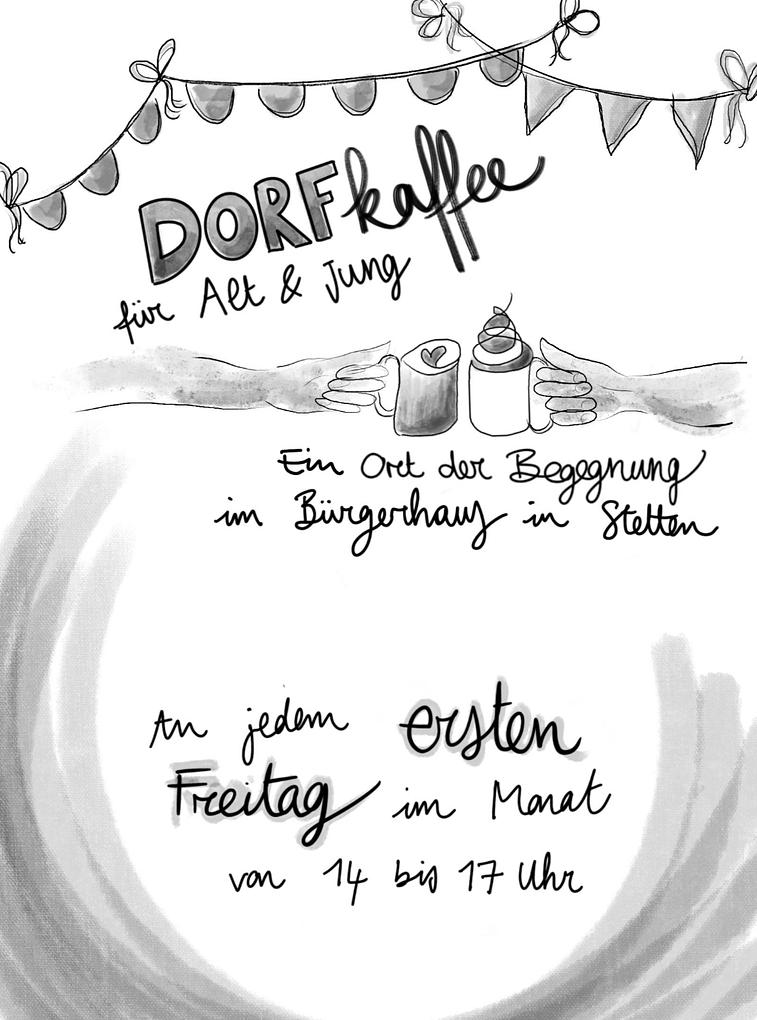 DORFkaffee
für Alt & Jung
Ein Ort der Begegnung
im Bürgerhaus in Stetten
An jedem ersten
Freitag im Monat
von 14 bis 17 Uhr